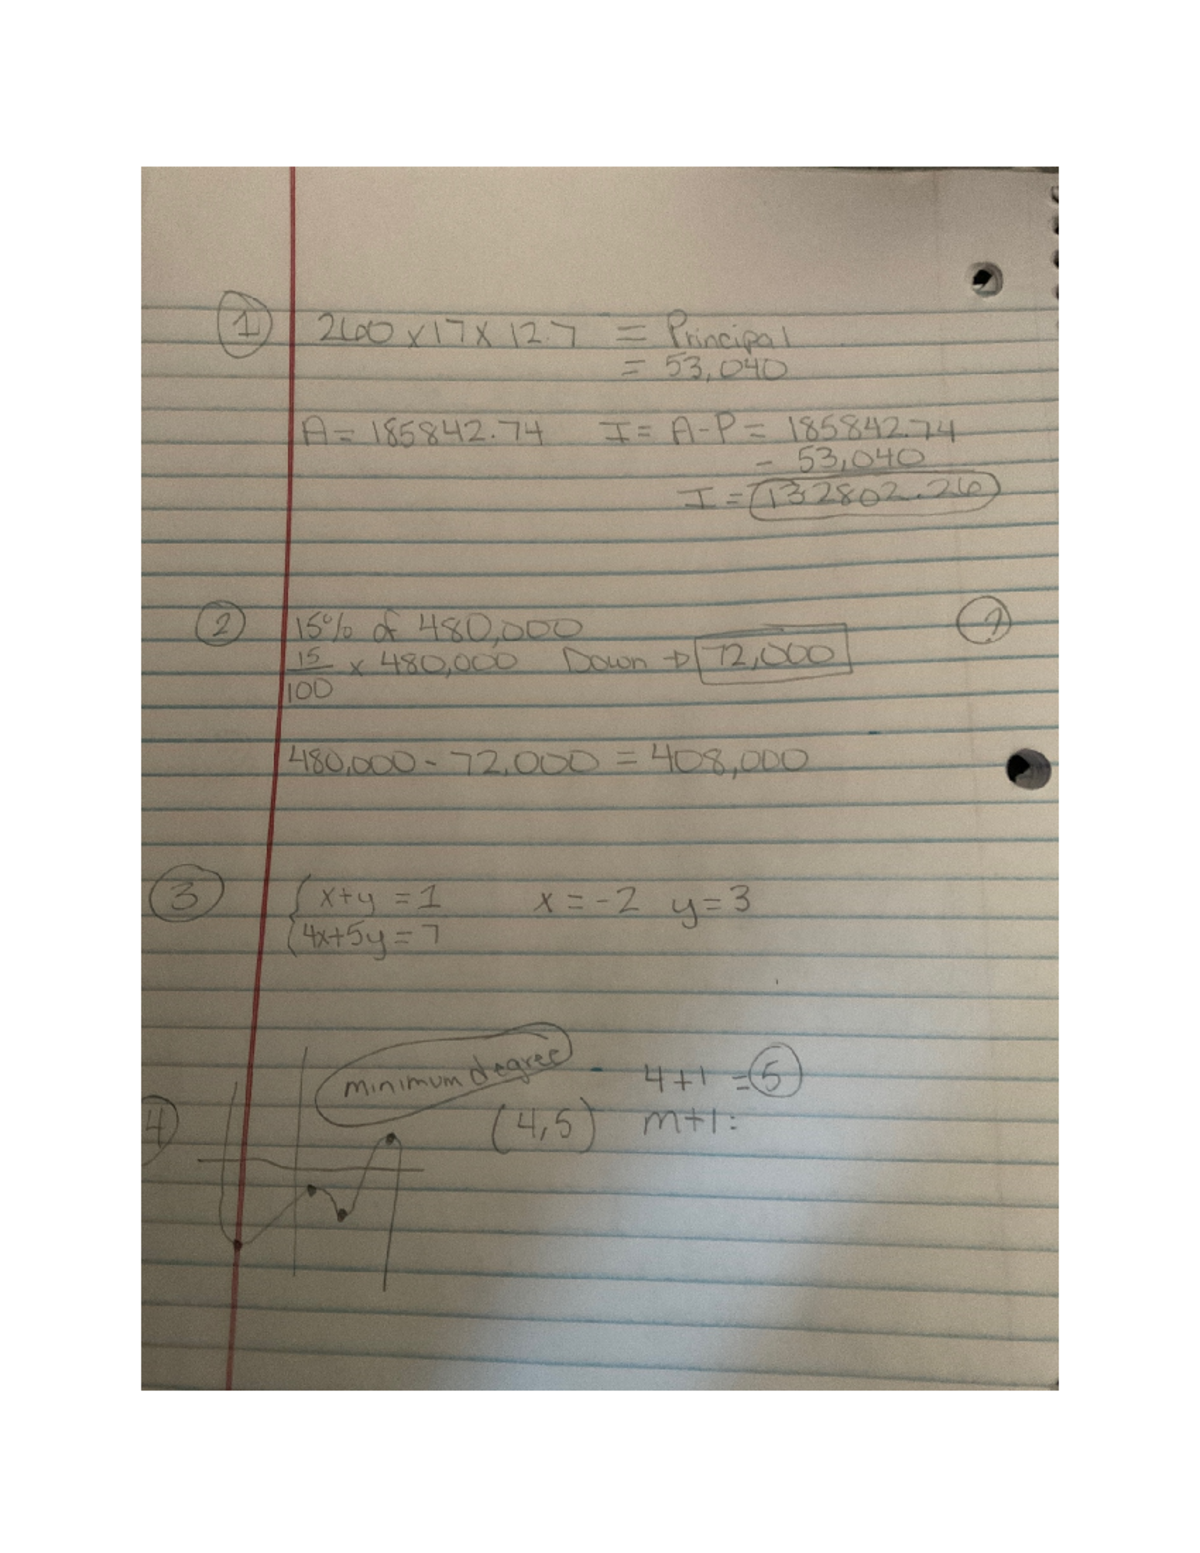 1 260 x 17 x 12.7 = Principal
= 53,040
A = 185842.74 I = A-P = 185842.74
- 53,040
I = 132802.26
2 15% of 480,000
15/100 x 480,000 Down → 72,000
480,000 - 72,000 = 408,000
3 x+y = 1 x = -2 y = 3
4x+5y = 7
minimum degree - 4+1 = 5
4 (4,5) m+1: